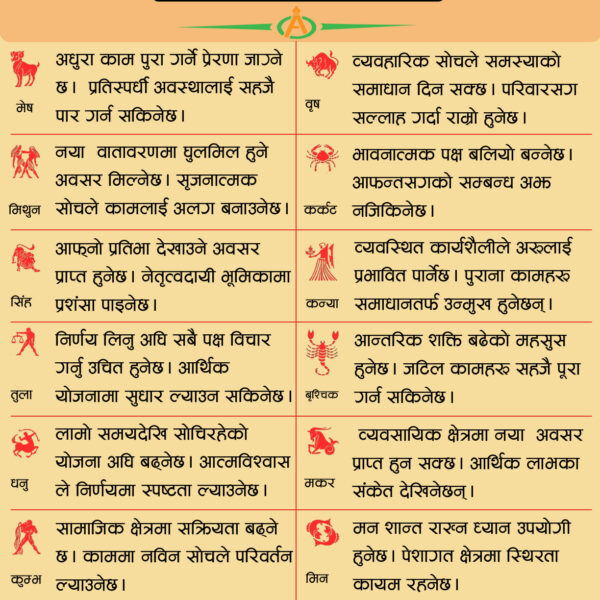 अधुरा काम पुरा गर्ने प्रेरणा जाग्ने
छ । प्रतिस्पर्धी अवस्थालाई सहजै
पार गर्न सकिनेछ ।
मेष
व्यवहारिक सोचले समस्याको
समाधान दिन सक्छ । परिवारसग
सल्लाह गर्दा राम्रो हुनेछ ।
वृष
नया वातावरणमा घुलमिल हुने
अवसर मिल्नेछ । सृजनात्मक
सोचले कामलाई अलग बनाउनेछ ।
मिथुन
भावनात्मक पक्ष बलियो बन्नेछ ।
आफन्तसगको सम्बन्ध अझ
नजिकिनेछ ।
कर्कट
आफ्नो प्रतिभा देखाउने अवसर
प्राप्त हुनेछ । नेतृत्वदायी भूमिकामा
प्रशंसा पाइनेछ ।
सिंह
व्यवस्थित कार्यशैलीले अरुलाई
प्रभावित पार्नेछ । पुराना कामहरु
समाधानतर्फ उन्मुख हुनेछन् ।
कन्या
निर्णय लिनु अघि सबै पक्ष विचार
गर्नु उचित हुनेछ । आर्थिक
योजनामा सुधार ल्याउन सकिनेछ ।
तुला
आन्तरिक शक्ति बढेको महसुस
हुनेछ । जटिल कामहरु सहजै पूरा
गर्न सकिनेछ ।
बृश्चिक
लामो समयदेखि सोचिरहेको
योजना अघि बढ्नेछ । आत्मविश्वास
ले निर्णयमा स्पष्टता ल्याउनेछ ।
धनु
व्यवसायिक क्षेत्रमा नया अवसर
प्राप्त हुन सक्छ । आर्थिक लाभका
संकेत देखिनेछन् ।
मकर
सामाजिक क्षेत्रमा सक्रियता बढ्ने
छ । काममा नविन सोचले परिवर्तन
ल्याउनेछ ।
कुम्भ
मन शान्त राख्न ध्यान उपयोगी
हुनेछ । पेशागत क्षेत्रमा स्थिरता
कायम रहनेछ ।
मिन